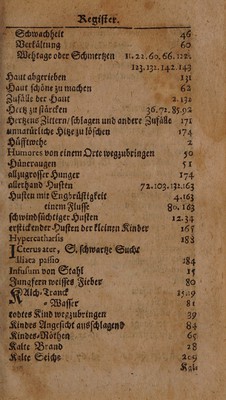 Regiſter.
Schwachheit 46
Verkältung 60
Wehtage oder Schmertzen 11.22.60.66.112.
123.131.142.143
Haut abgerieben 131
Haut ſchöne zu machen 62
Zufälle der Haut 2.132
Hertz zu ſtärcken 36.72.85.92
Hertzens Zittern/ſchlagen und andere Zufälle 171
unnatürliche Hitze zu löſchen 174
Hüfftwehe 2
Humores von einem Orte wegzubringen 50
Hüneraugen 51
allzugroſſer Hunger 174
allerhand Huſten 72.103.131.163
Huſten mit Engbrüſtigkeit 4.163
einem Fluſſe 80.163
ſchwindſüchtiger Huſten 12.34
erſtickender Huſten der kleinen Kinder 165
Hypercatharſis 188
ICterus ater, S. ſchwartze Sucht
Illiaca paſsio 184
Infuſum von Stahl 15
Jungfern weiſſes Fieber 80
KAlch-Tranck
-Waſſer 81
todtes Kind wegzubringen 39
Kindes Angeſicht ausſchlagend 84
Kindes-Nöthen 69
Kalte Brand 28
Kalte Seichs 209